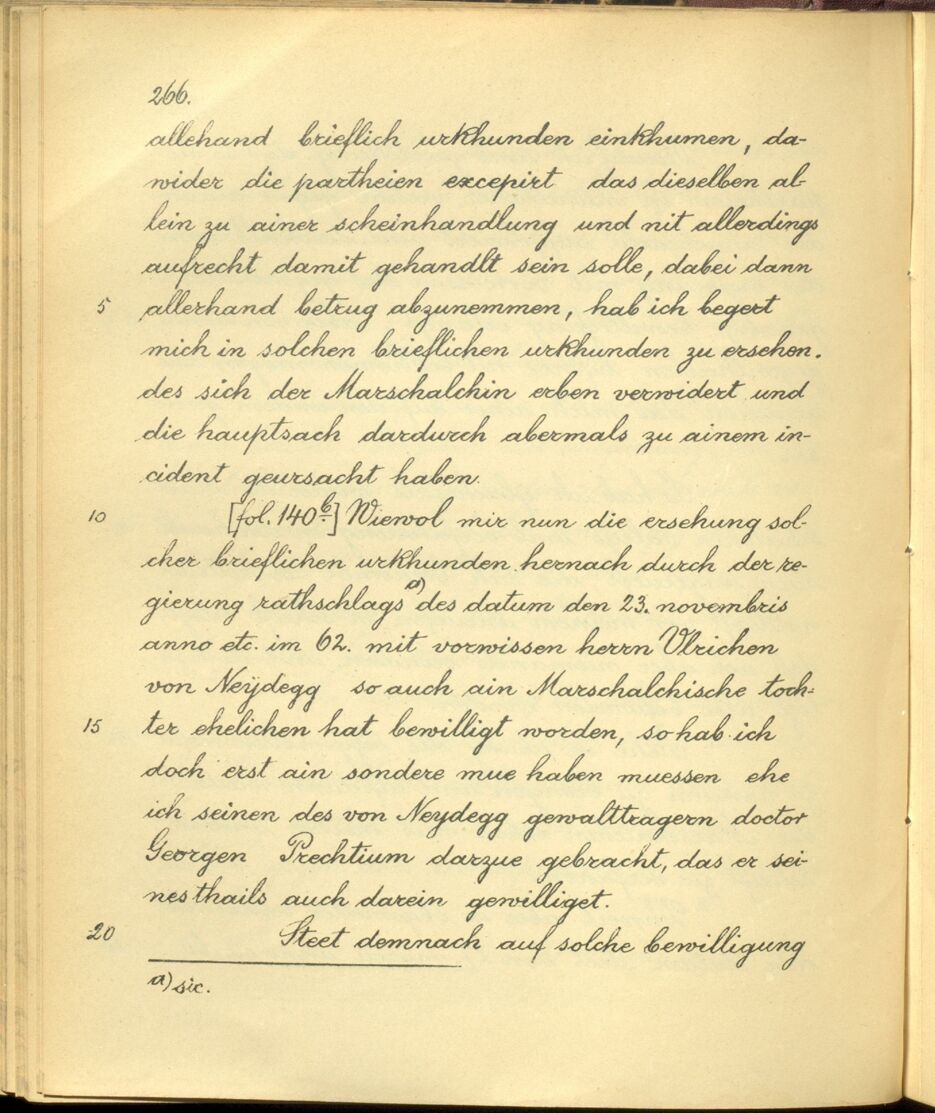 266.
allehand brieflich urkhunden einkhumen, da-
wider die partheien excepirt das dieselben al-
lein zu ainer scheinhandlung und nit allerdings
aufrecht damit gehandlt sein solle, dabei dann
5 allerhand betrug abzunemmen, hab ich begert
mich in solchen brieflichen urkhunden zu ersehen.
des sich der Marschalchin erben verwidert und
die hauptsach dardurch abermals zu ainem in-
cident geursacht haben.
10 [fol. 140b] Wiewol mir nun die ersehung sol-
cher brieflichen urkhunden hernach durch der re-
gierung rathschlags a) des datum den 23. novembris
anno etc. im 62. mit vorwissen herrn Ulrichen
von Neÿdegg so auch ain Marschalchische toch-
15 ter ehelichen hat bewilligt worden, so hab ich
doch erst ain sondere mue haben muessen ehe
ich seinen des von Neydegg gewalttragern doctor
Georgen Prechtium darzue gebracht, das er sei-
nes thails auch darein gewilliget.
20 Steet demnach auf solche bewilligung
a) sic.